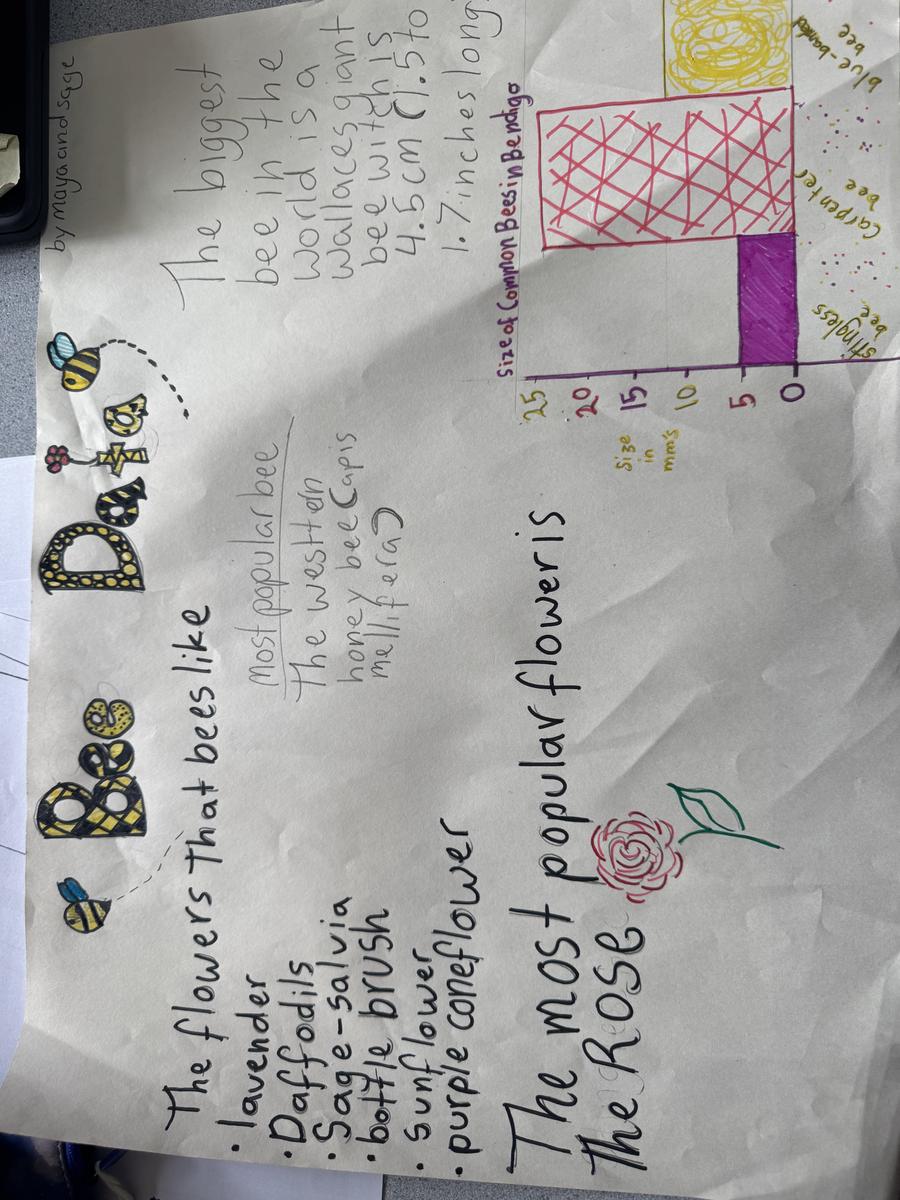 Bee Data
by maya and sage
The flowers That bees like
• lavender
• Daffodils
• Sage-salvia
• bottle brush
• sunflower
• purple coneflower
Most popular bee
The western
honey bee (apis
mellifera)
The biggest
bee in the
world is a
wallaces giant
bee witch is
4.5cm (1.5 to
1.7 inches long.
The most popular flower is
The Rose
Size of Common Bees in Bendigo
Size
in
mm's
25
20
15
10
5
0
stingless
bee
carpenter
bee
blue-banded
bee